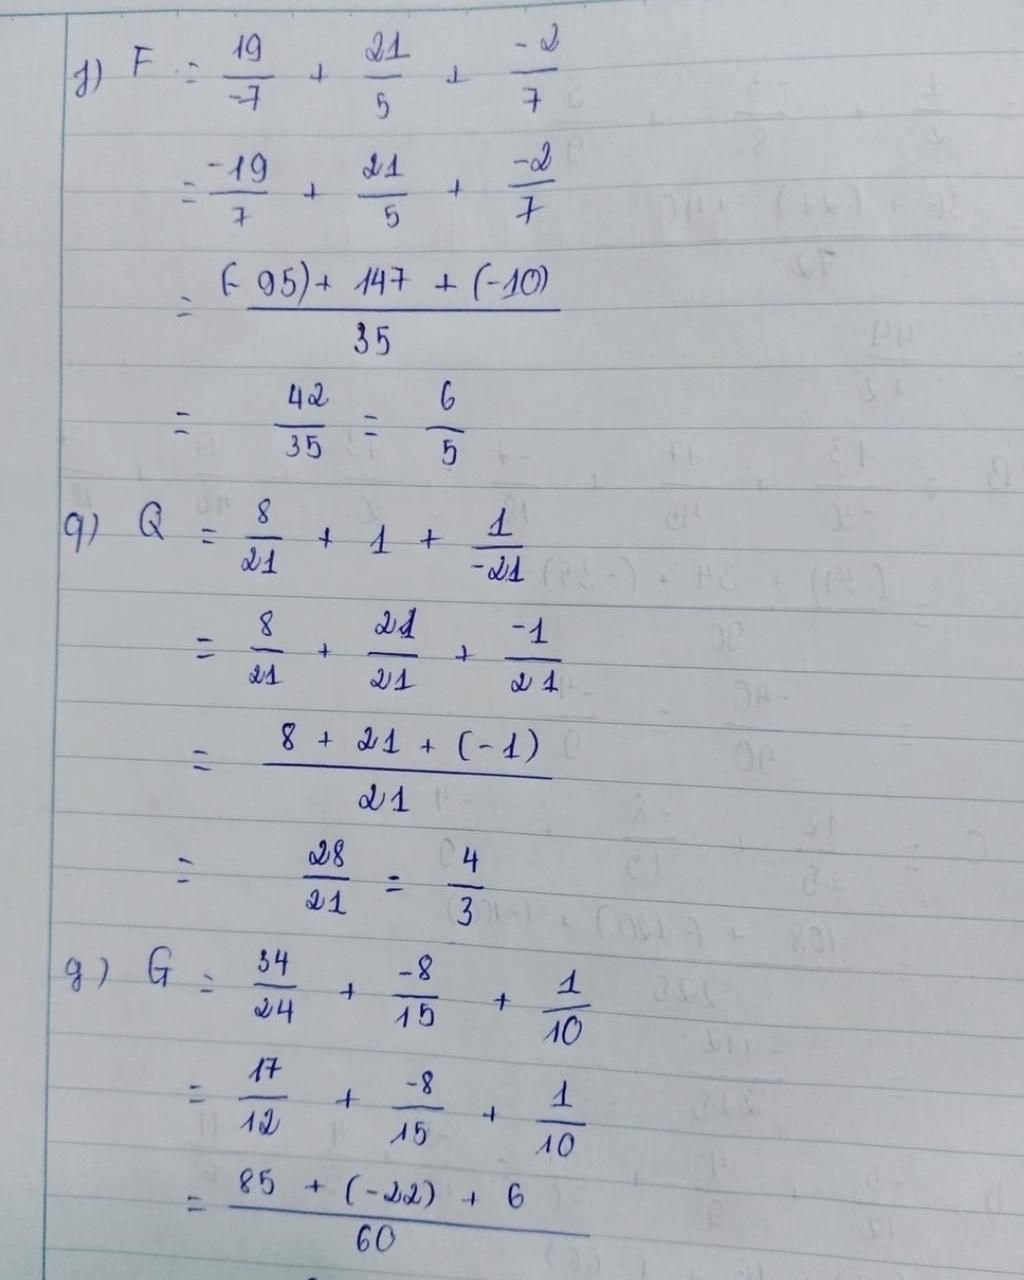 f) F = 19/-7 + 21/5 + -2/7
= -19/7 + 21/5 + -2/7
= (-95) + 147 + (-10) / 35
= 42/35 = 6/5
q) Q = 8/21 + 1 + 1/-21
= 8/21 + 21/21 + -1/21
= 8 + 21 + (-1) / 21
= 28/21 = 4/3
g) G = 34/24 + -8/15 + 1/10
= 17/12 + -8/15 + 1/10
= 85 + (-22) + 6 / 60